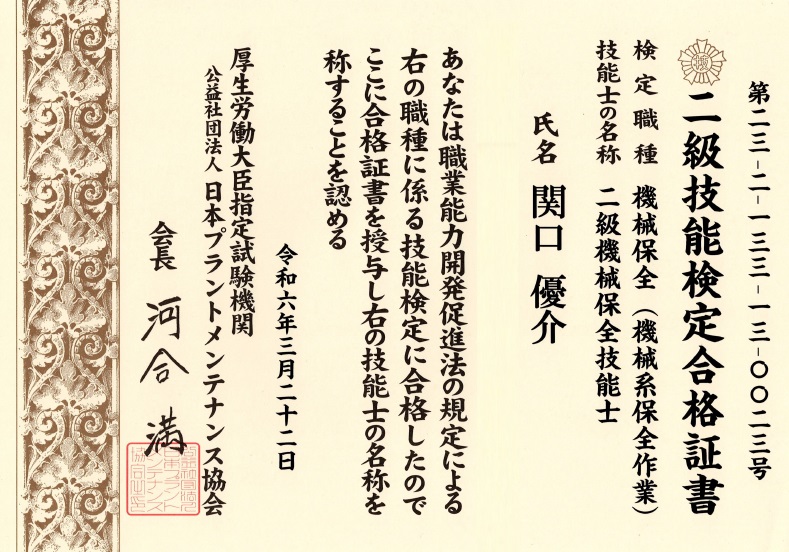 第二三-二-一三三-一三-〇〇二三号
二級技能検定合格証書
検定職種 機械保全（機械系保全作業）
技能士の名称 二級機械保全技能士
氏名 関口 優介
あなたは職業能力開発促進法の規定による
右の職種に係る技能検定に合格したので
ここに合格証書を授与し右の技能士の名称を
称することを認める
令和六年三月二十二日
厚生労働大臣指定試験機関
公益社団法人 日本プラントメンテナンス協会
会長 河合 満